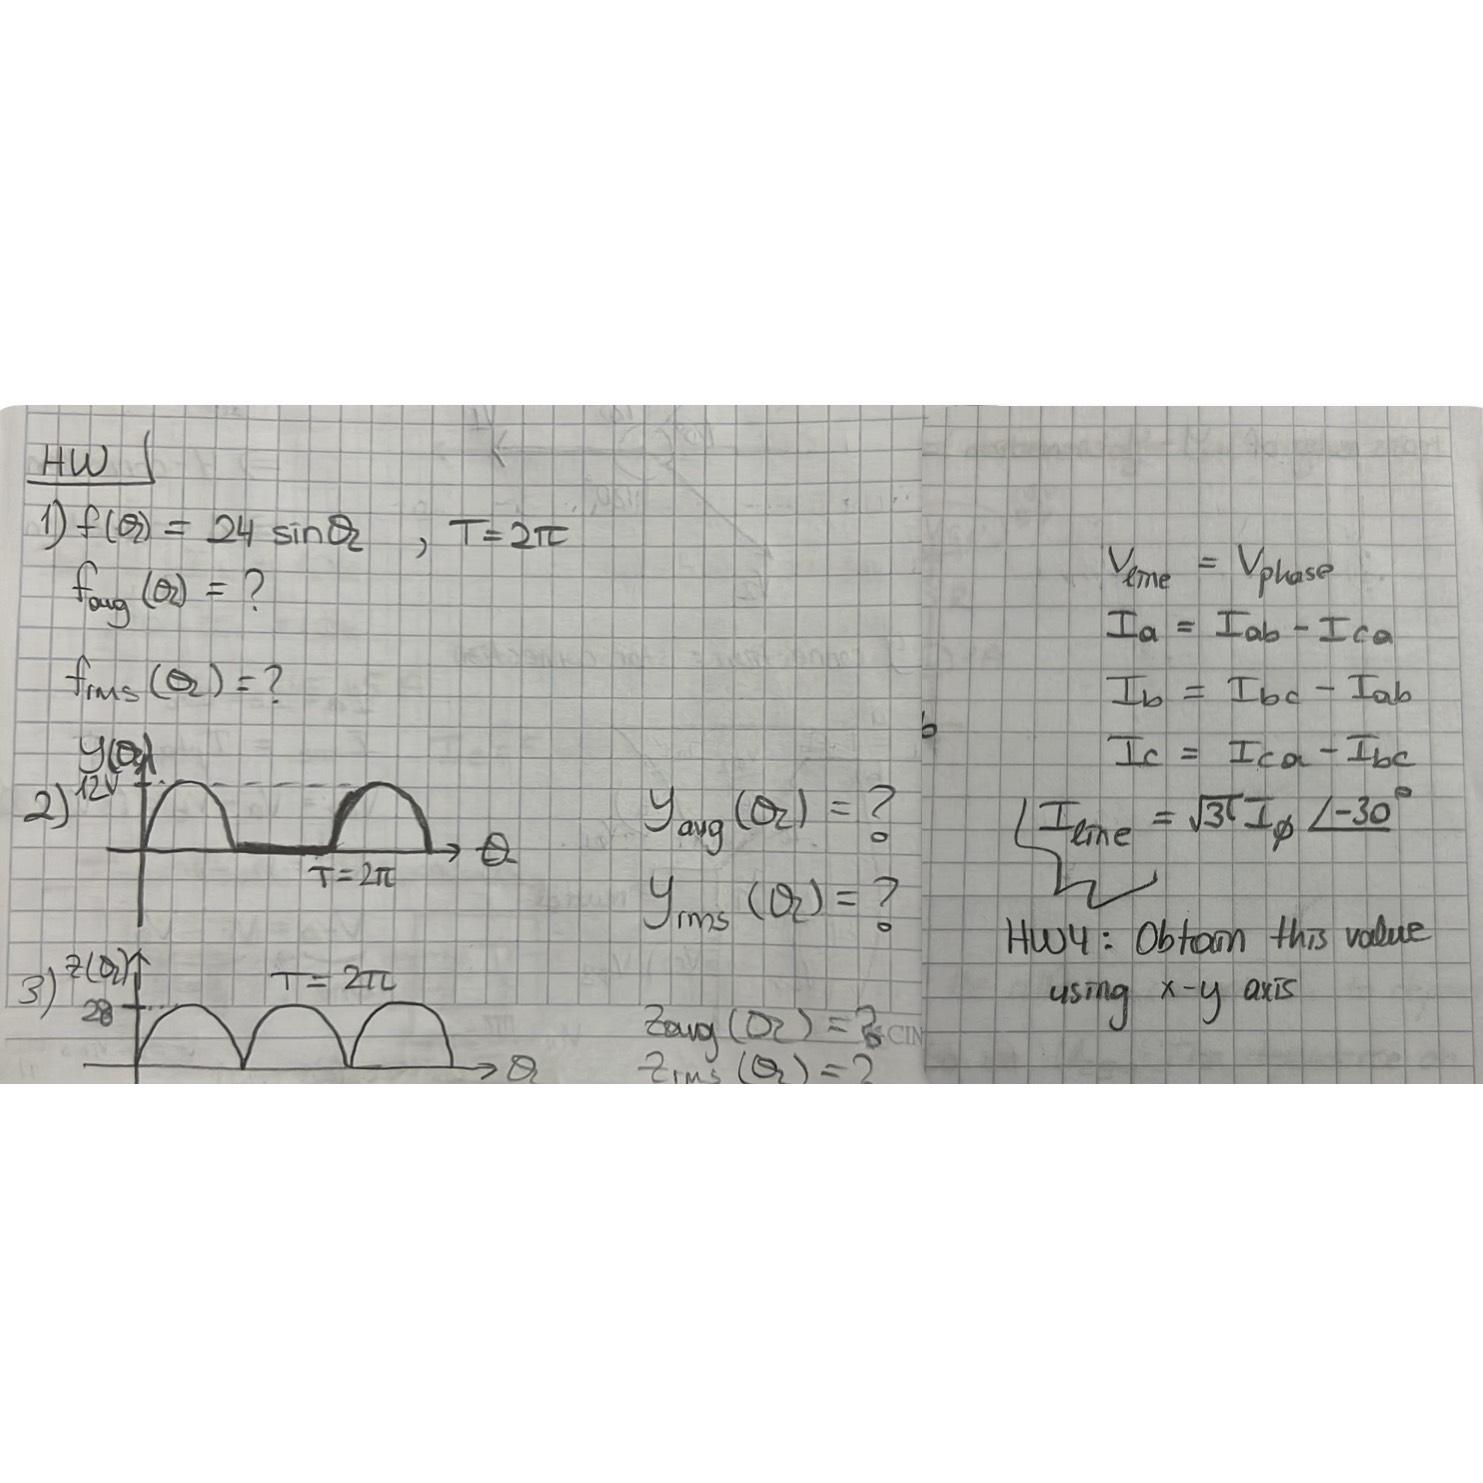 HW
1) f(θ) = 24 sinθ , T=2π
favg (θ) = ?
frms (θ) = ?
y(θ)
2) 12V
θ
T=2π
yavg (θ) = ?
yrms (θ) = ?
3) z(θ)
T=2π
28
θ
zavg (θ) = ?
zrms (θ) = ?
b
Vline = Vphase
Ia = Iab - Ica
Ib = Ibc - Iab
Ic = Ica - Ibc
Iline = √3 Iφ ∠-30°
HW4: Obtain this value
using x-y axis